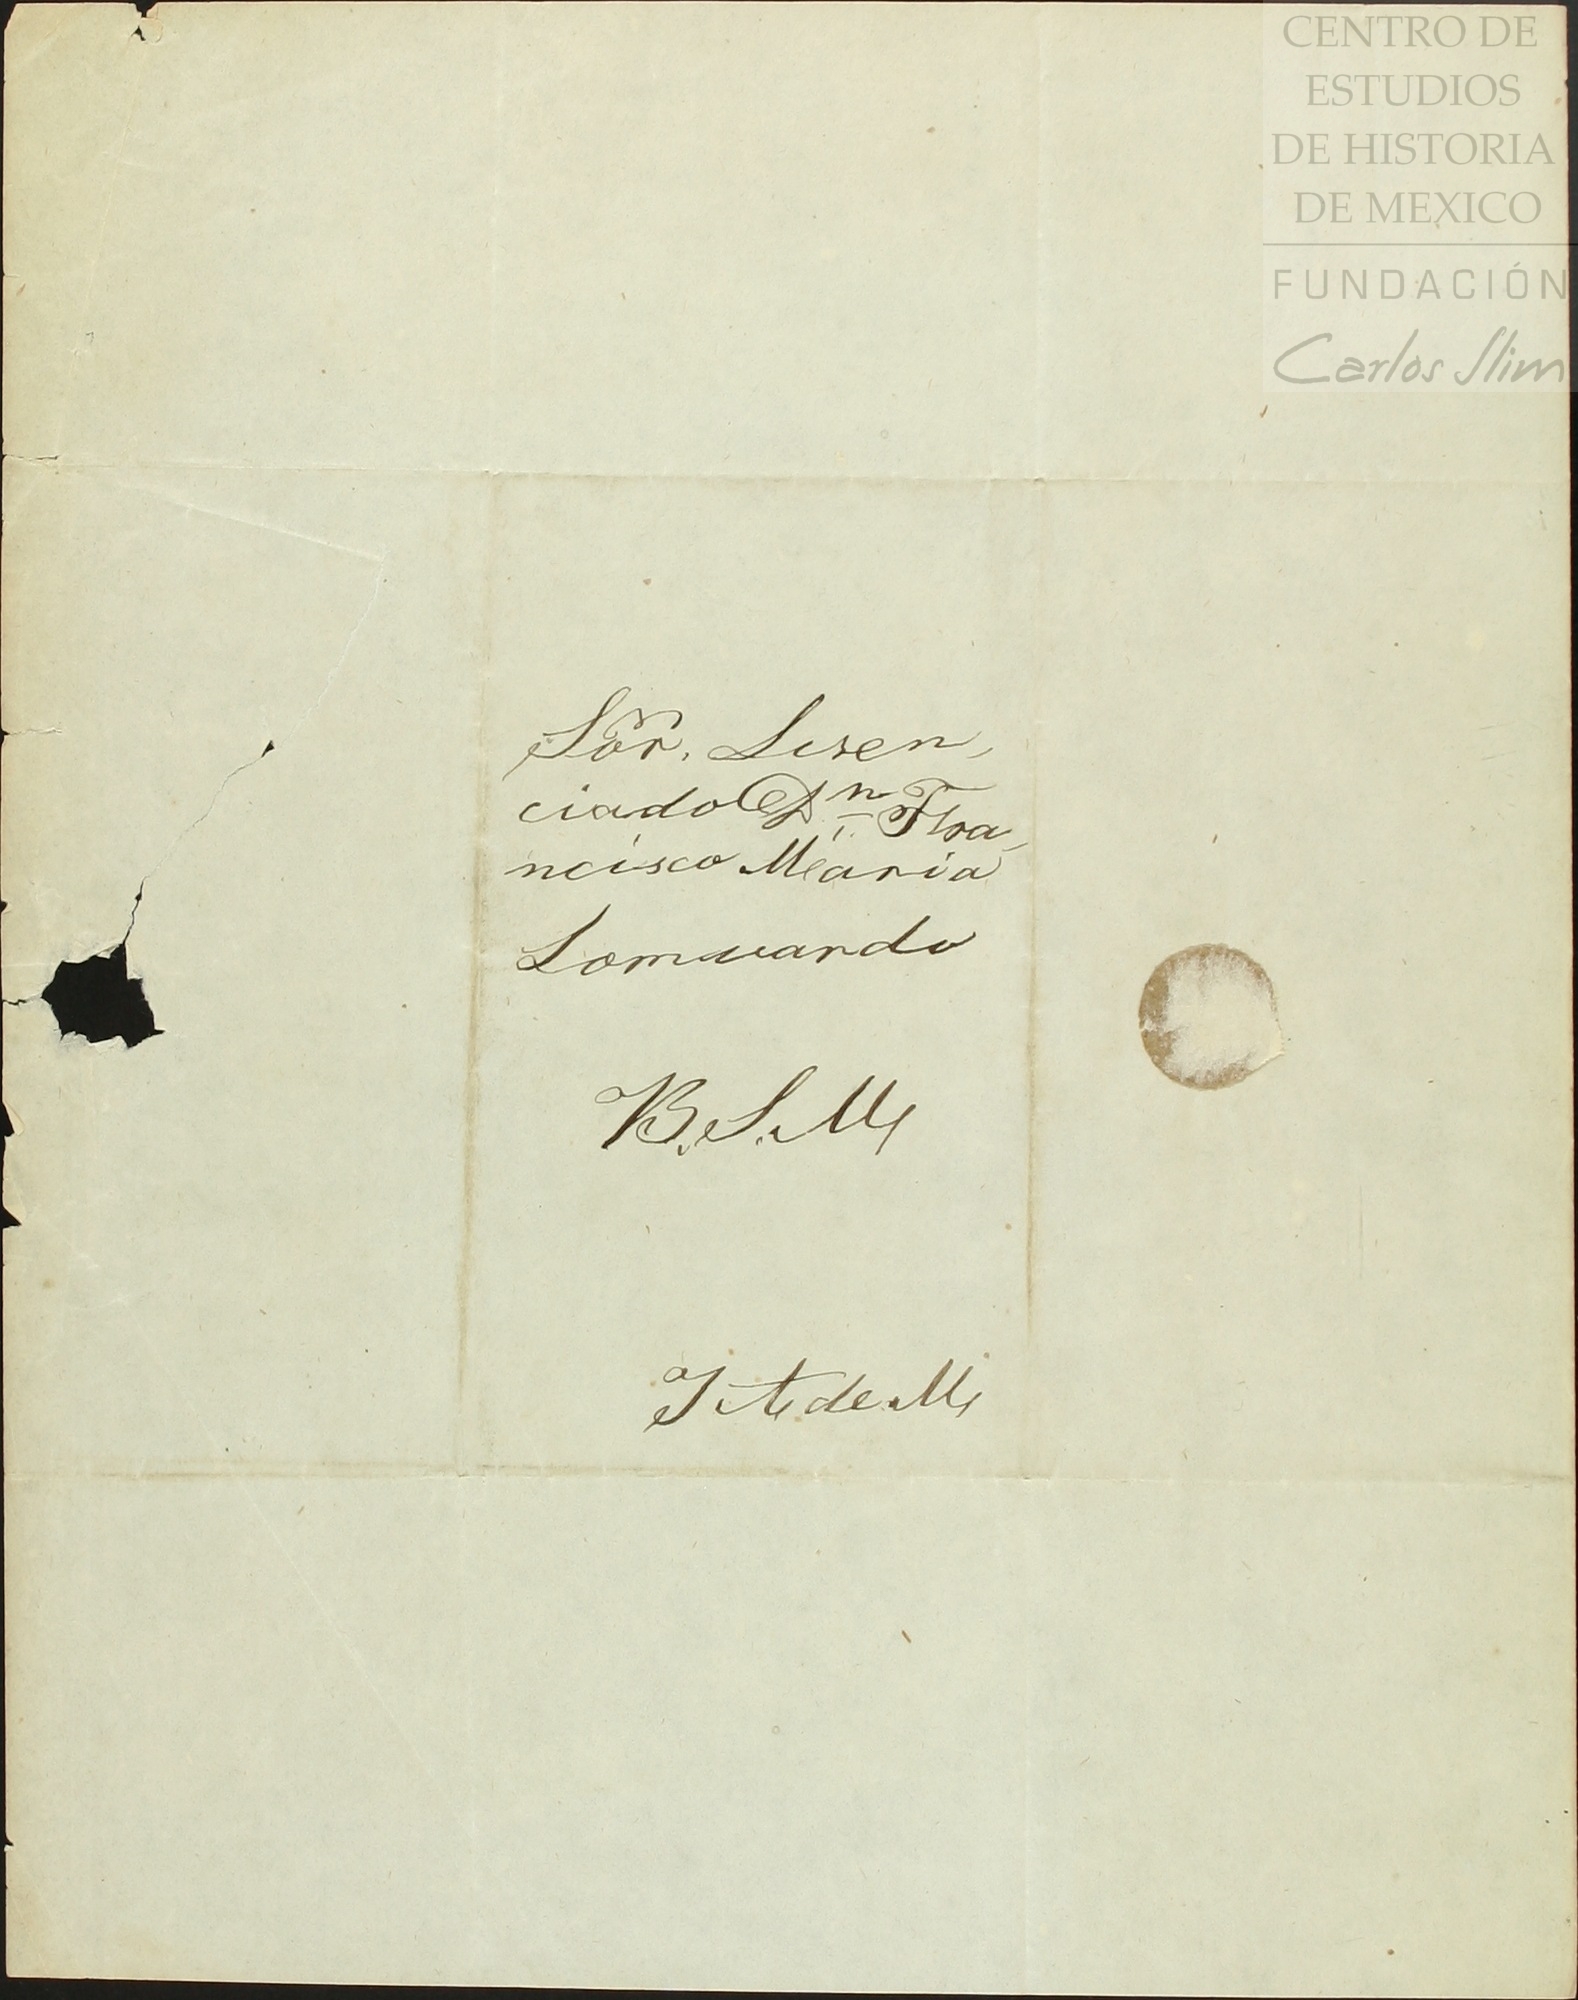 CENTRO DE
ESTUDIOS
DE HISTORIA
DE MEXICO
FUNDACIÓN
Carlos Slim
Sõr. Lisen,
ciado Dn Fra,
ncisco Maria
Lomvardo
B.S.M
de M